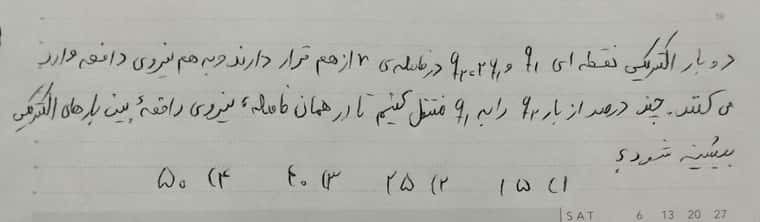 دو بار الکتریکی نقطه ای q₁ و q₂=2q₁ در فاصله‌ی r از هم قرار دارند و به هم نیروی دافعه وارد
می کنند. چند درصد از بار q₂ را به q₁ منتقل کنیم تا در همان فاصله، نیروی دافعهٔ بین بارهای الکتریکی
بیشینه شود؟
۱) ۱۵ ۲) ۲۵ ۳) ۴۰ ۴) ۵۰
SAT 6 13 20 27